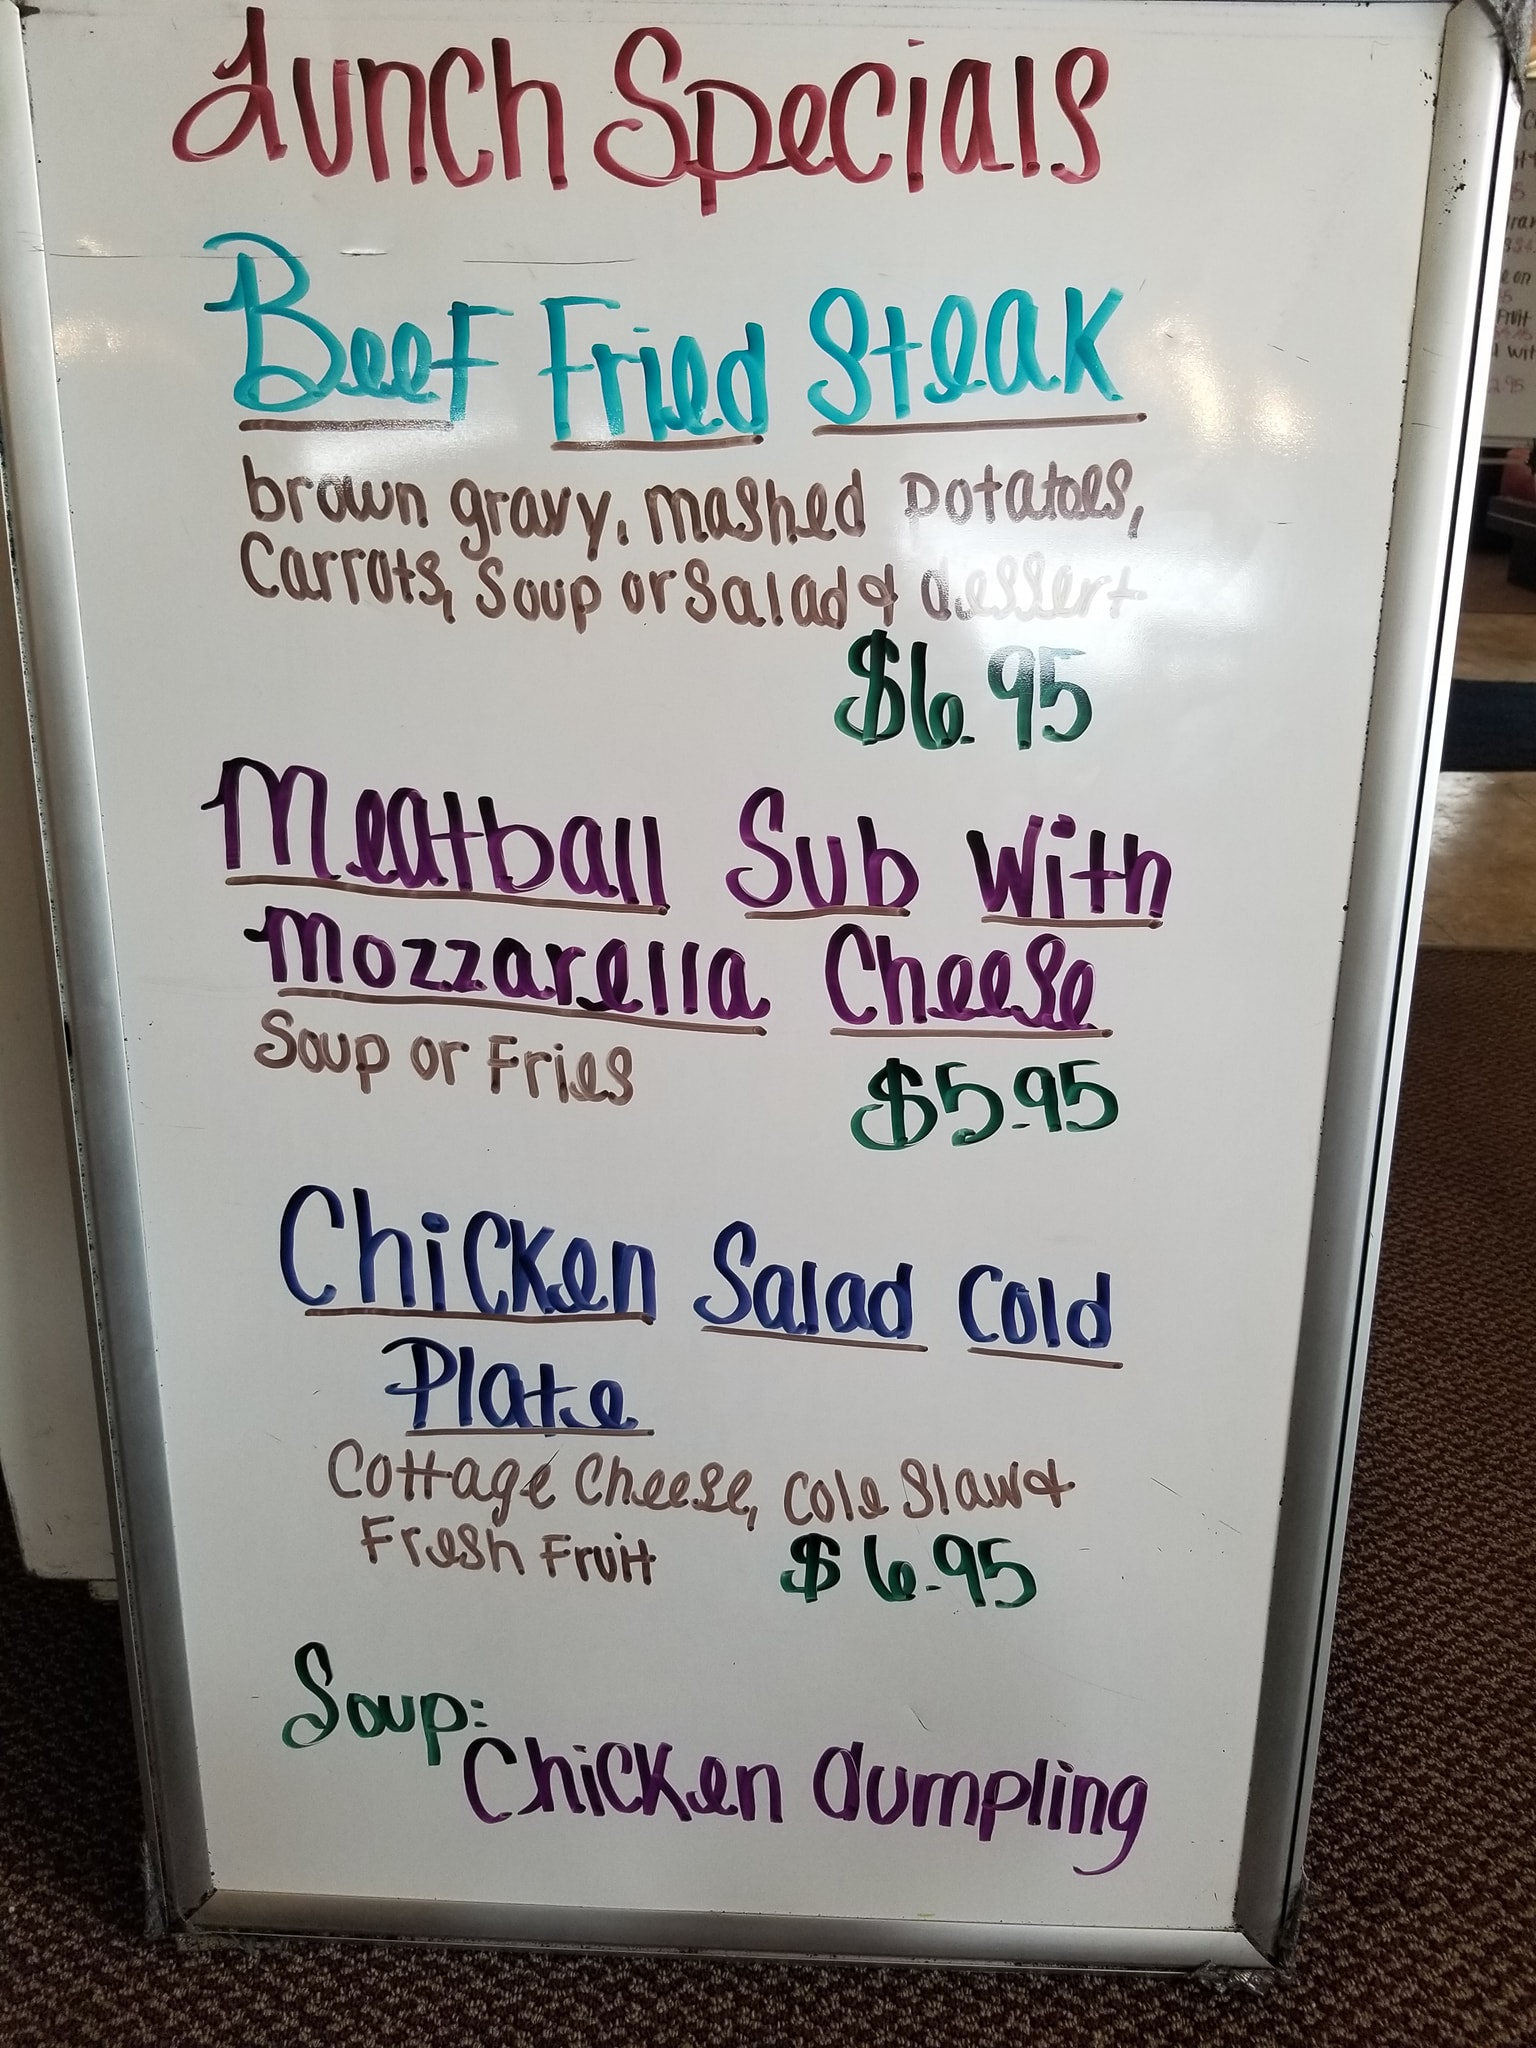 Lunch Specials
Beef Fried Steak
brown gravy, mashed potatoes,
Carrots, Soup or Salad & dessert
$6.95
Meatball Sub with
Mozzarella Cheese
Soup or Fries $5.95
Chicken Salad Cold
Plate
Cottage Cheese, Cole Slaw &
Fresh Fruit $6.95
Soup:
Chicken dumpling